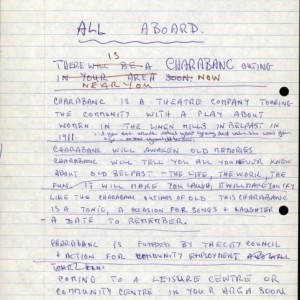 ALL ABOARD.
IS
THERE WILL BE A CHARABANC OUTING
IN YOUR AREA SOON. NOW
NEAR YOU
CHARABANC IS A THEATRE COMPANY TOURING
THE COMMUNITY WITH A PLAY ABOUT
WOMEN IN THE LINEN MILLS IN BELFAST IN
1911.
CHARABANC WILL AWAKEN OLD MEMORIES
CHARABANC WILL TELL YOU ALL YOU NEVER KNEW
ABOUT OLD BELFAST - THE LIFE, THE WORK, THE
FUN. IT WILL MAKE YOU LAUGH, IT WILL MAKE YOU CRY
LIKE THE CHARABANC OUTINGS OF OLD THIS CHARABANC
IS A TONIC, A OCCASION FOR SONGS & LAUGHTER
- A DATE TO REMEMBER.
CHARABANC IS FUNDED BY THE CITY COUNCIL
& ACTION FOR COMMUNITY EMPLOYMENT
COMING TO A LEISURE CENTRE OR
COMMUNITY CENTRE IN YOUR AREA SOON